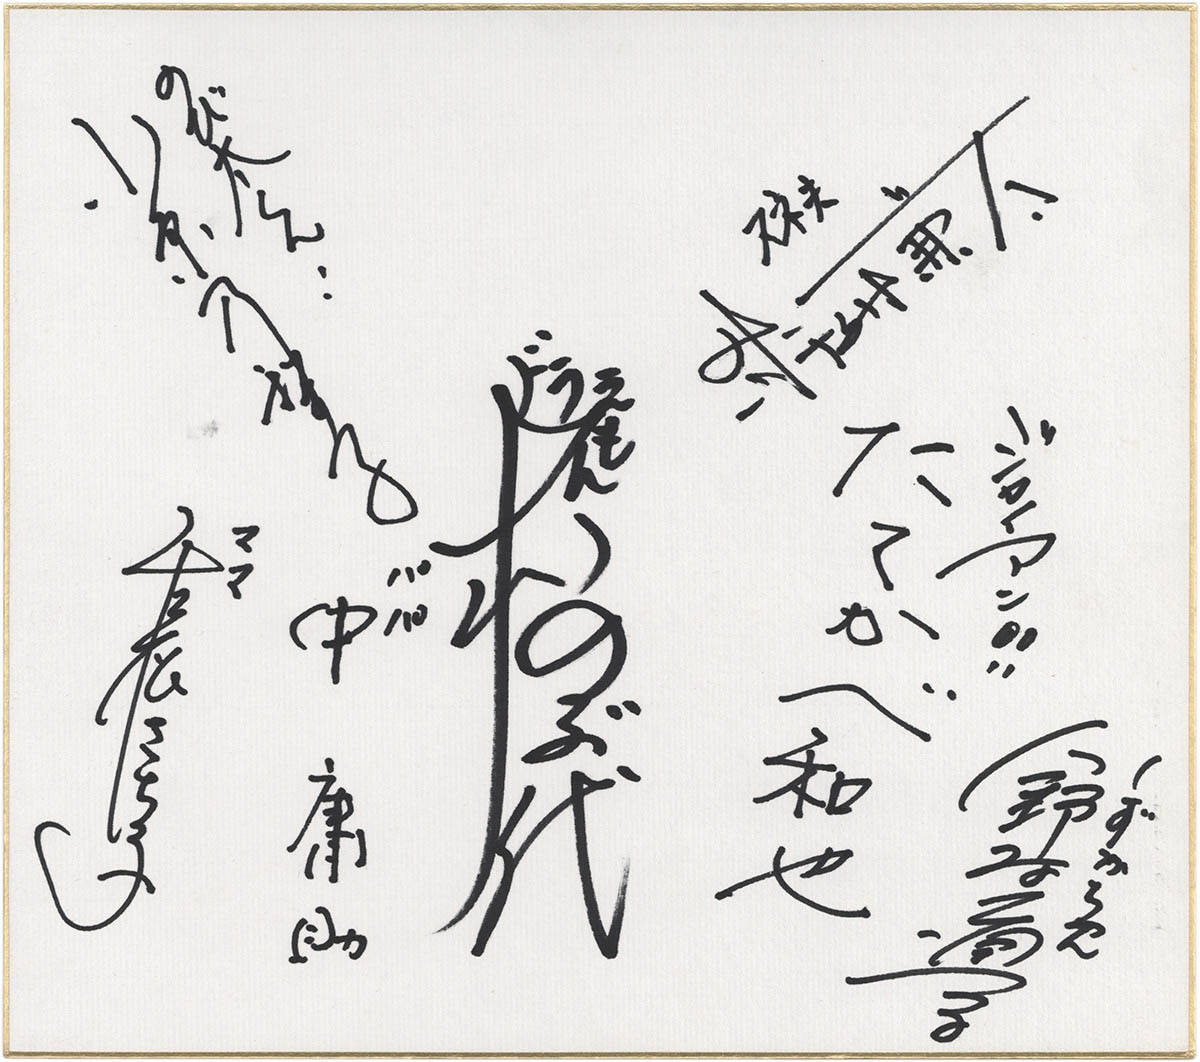 スネ夫
肝付兼太
ジャイアン!!
たてかべ和也
しずかちゃん
ドラえもん
大山のぶ代
パパ
中庸助
のび太くん
小原乃梨子
ママ